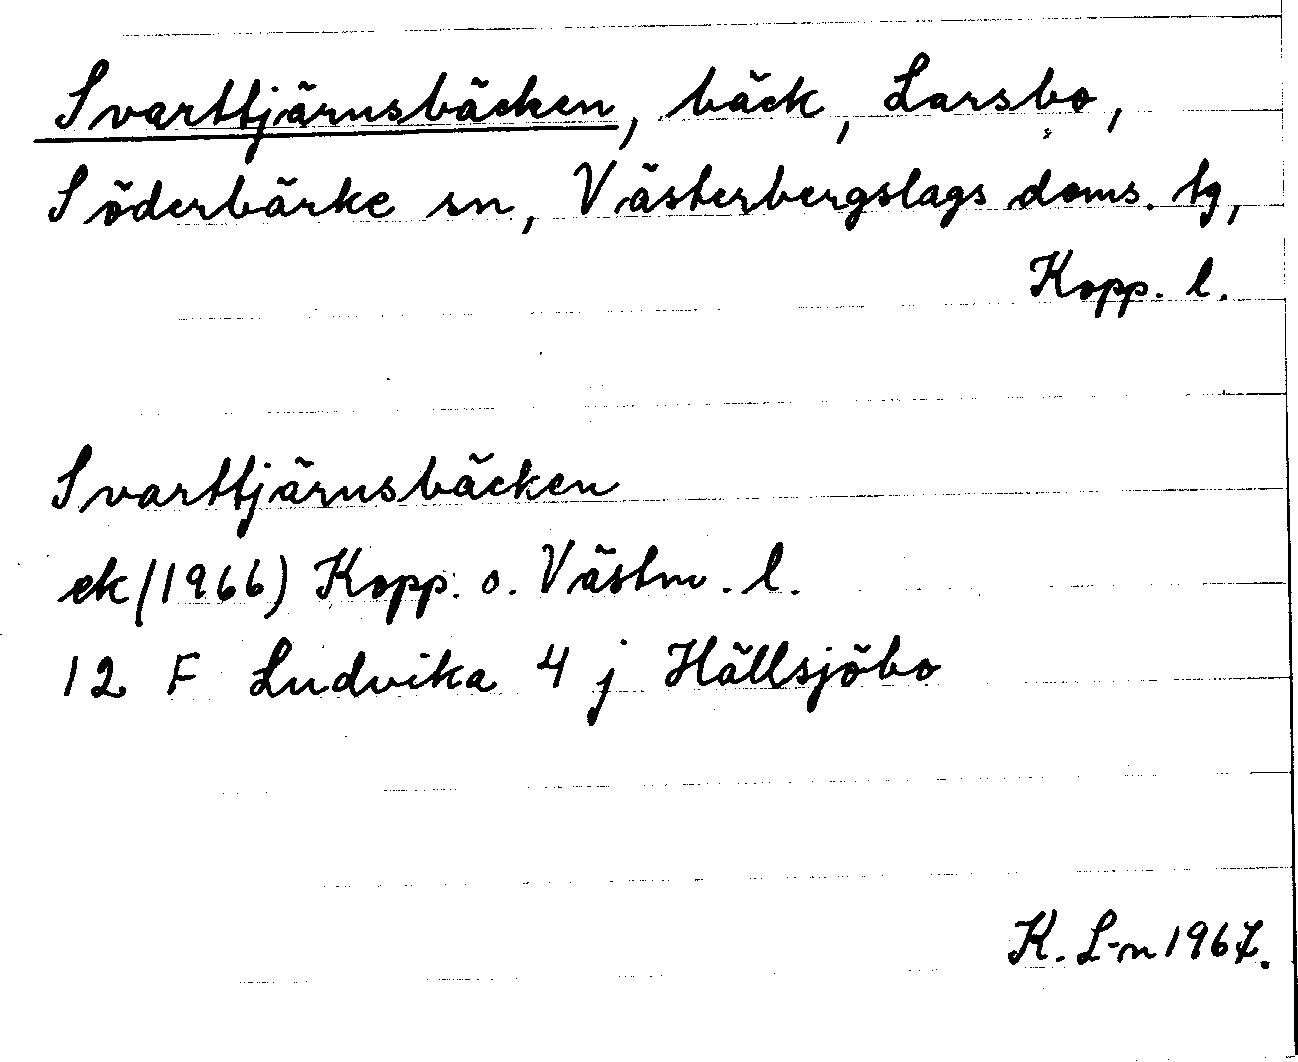 Svarttjärnsbäcken, bäck, Larsbo,
Söderbärke sn, Västerbergslags doms. tg,
Kopp. l.
Svarttjärnsbäcken
ek (1966) Kopp. o. Västm. l.
12 F Ludvika 4 j Hällsjöbo
K. L-n 1967.